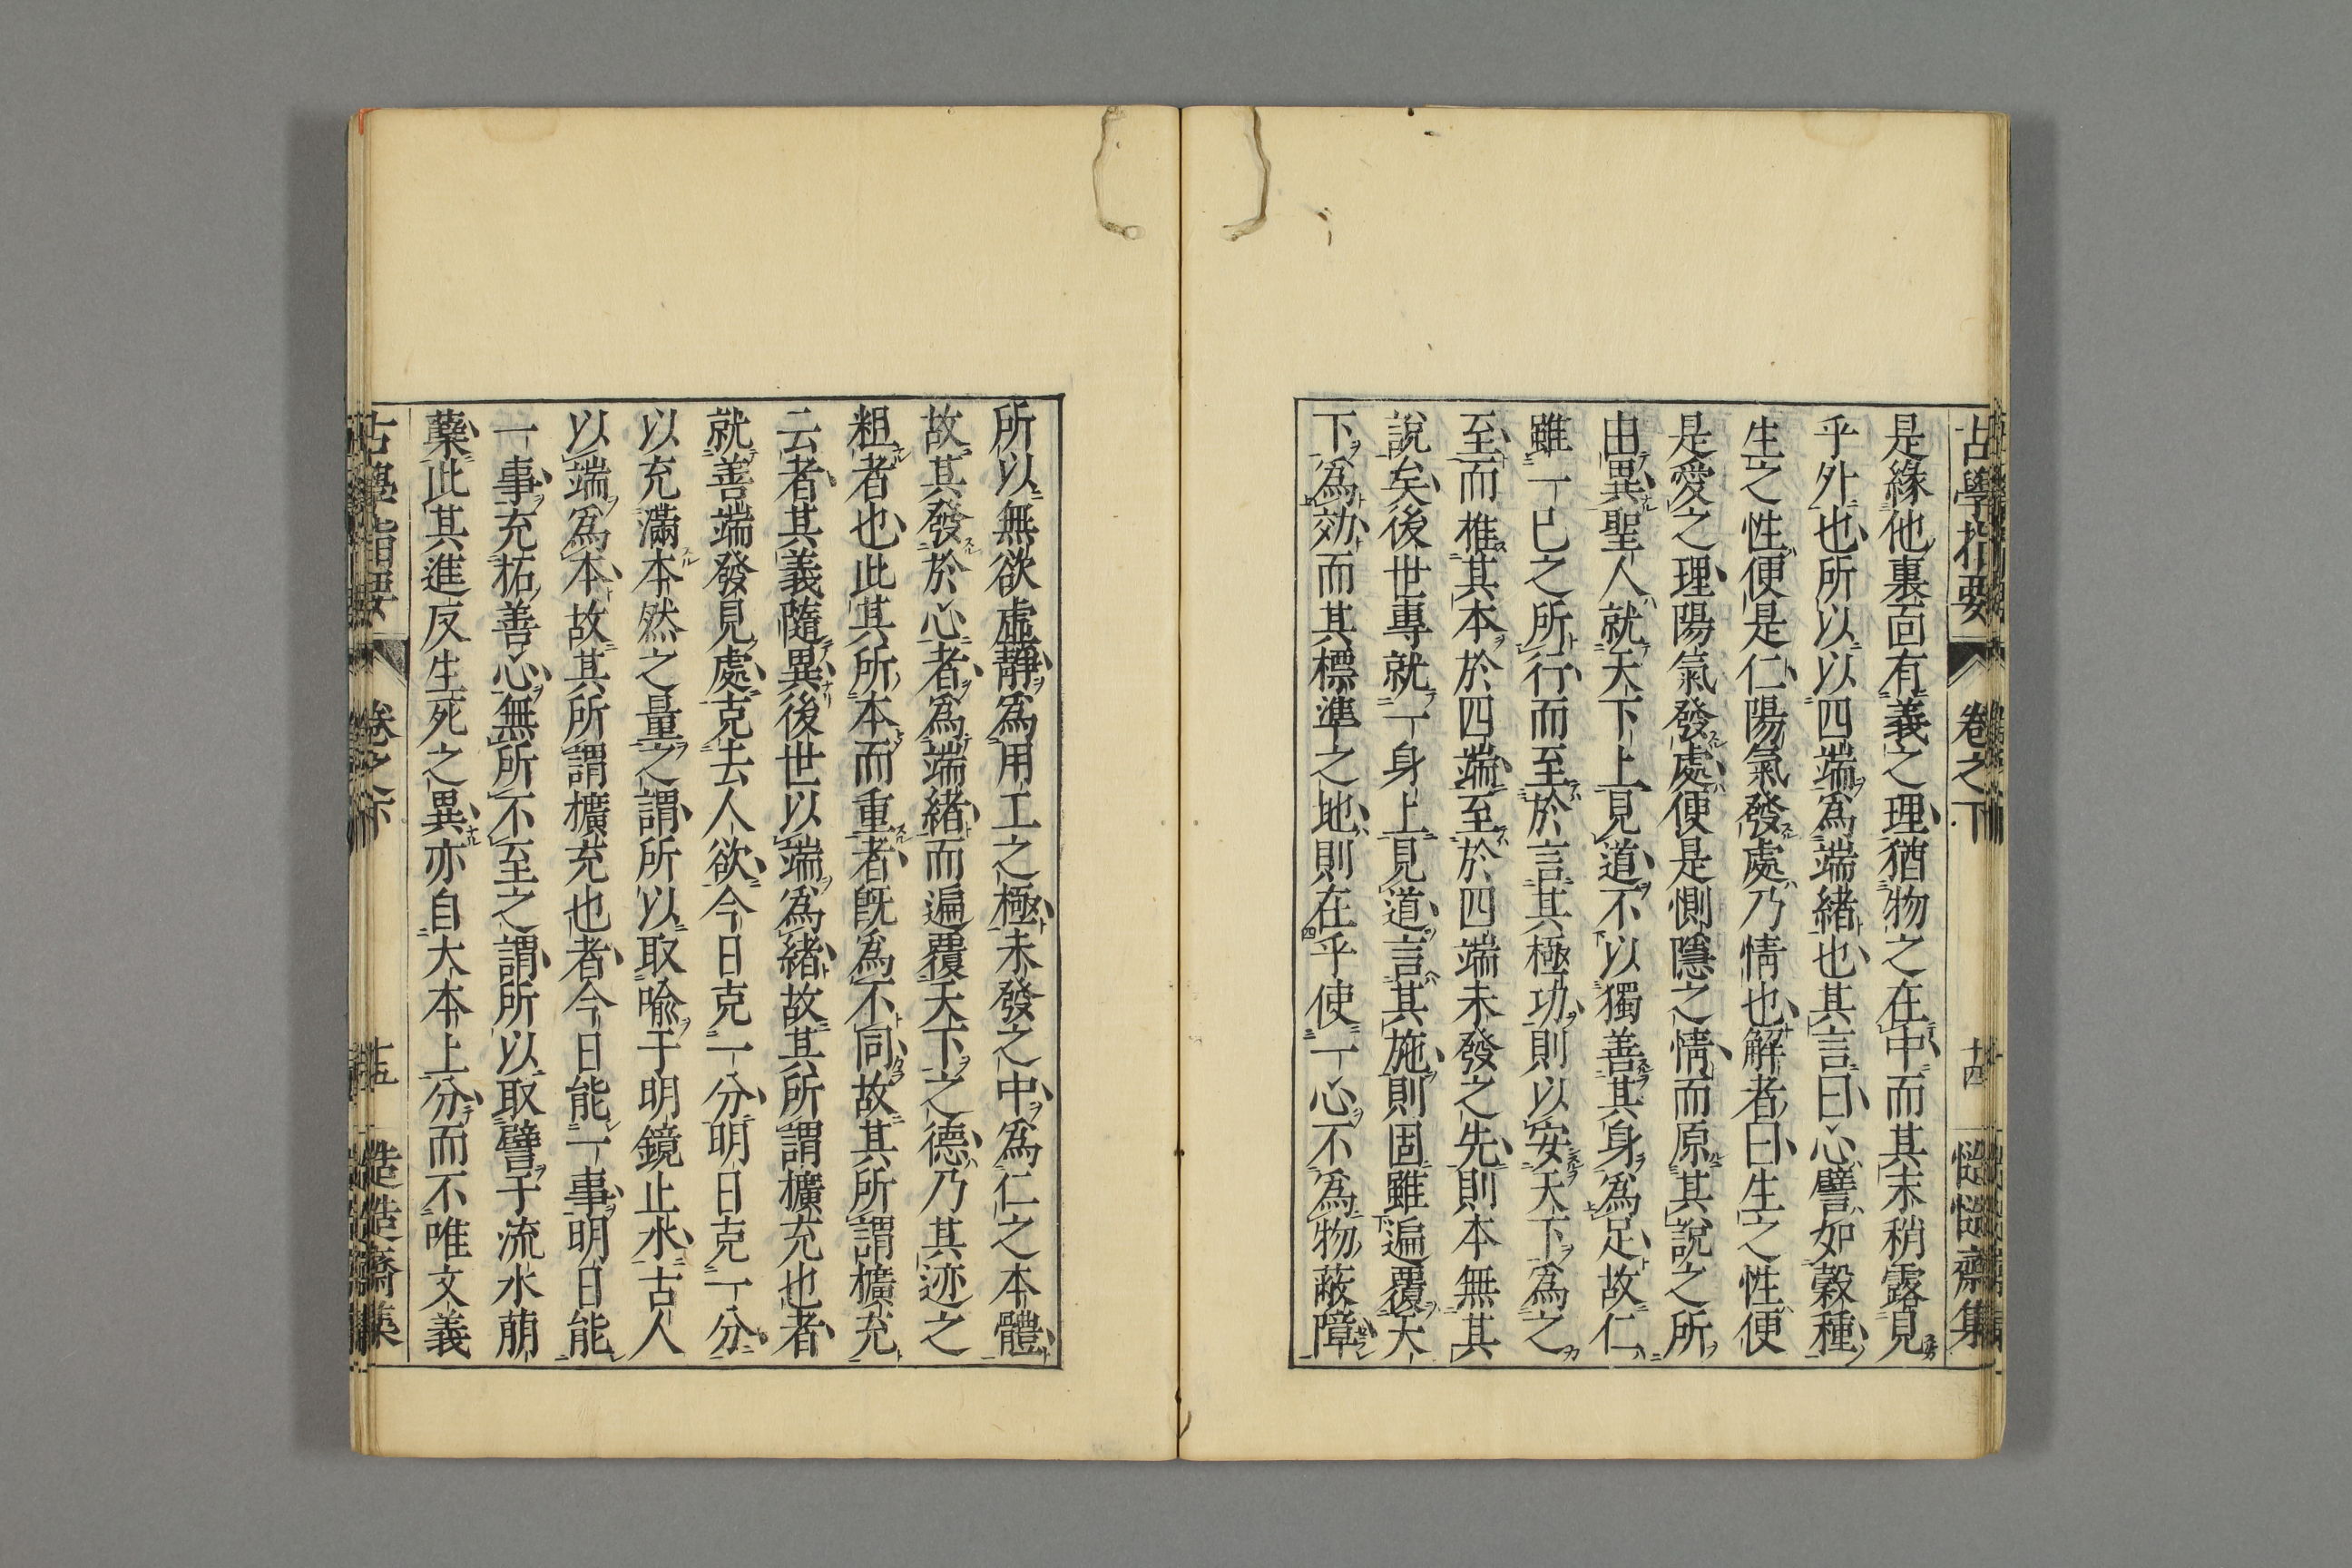 古學指要 卷之下 十四 慥慥齋集
是緣他裏面有義之理猶物之在中而其末稍露見
乎外也所以以四端爲端緒也其言曰心譬如穀種
生之性便是仁陽氣發處乃情也解者曰生之性便
是愛之理陽氣發處便是惻隱之情而原其說之所
由異聖人就天下上見道不以獨善其身爲足故仁
雖一己之所行而至於言其極功則以安天下爲之
至而推其本於四端至於四端未發之先則本無其
說矣後世專就一身上見道言其施則固雖遍覆天
下爲効而其標準之地則在乎使一心不爲物蔽障
所以無欲虛靜爲用工之極未發之中爲仁之本體
故其發於心者爲端緒而遍覆天下之德乃其迹之
粗者也此其所本而重者旣爲不同故其所謂擴充
云者其義隨異後世以端爲緒故其所謂擴充也者
就善端發見處克去人欲今日克一分明日克一分
以充滿本然之量之謂所以取喻于明鏡止水古人
以端爲本故其所謂擴充也者今日能一事明日能
一事充拓善心無所不至之謂所以取譬于流水萠
蘖此其進反生死之異亦自大本上分而不唯文義
古學指要 卷之下 十五 慥慥齋集